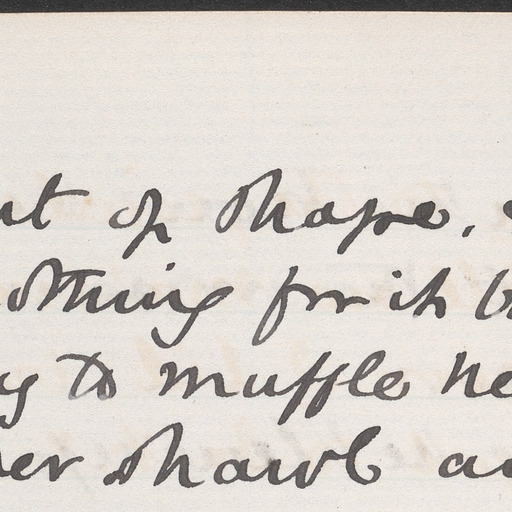 ut of shape.
othing for it b
y to muffle he
er shawl a